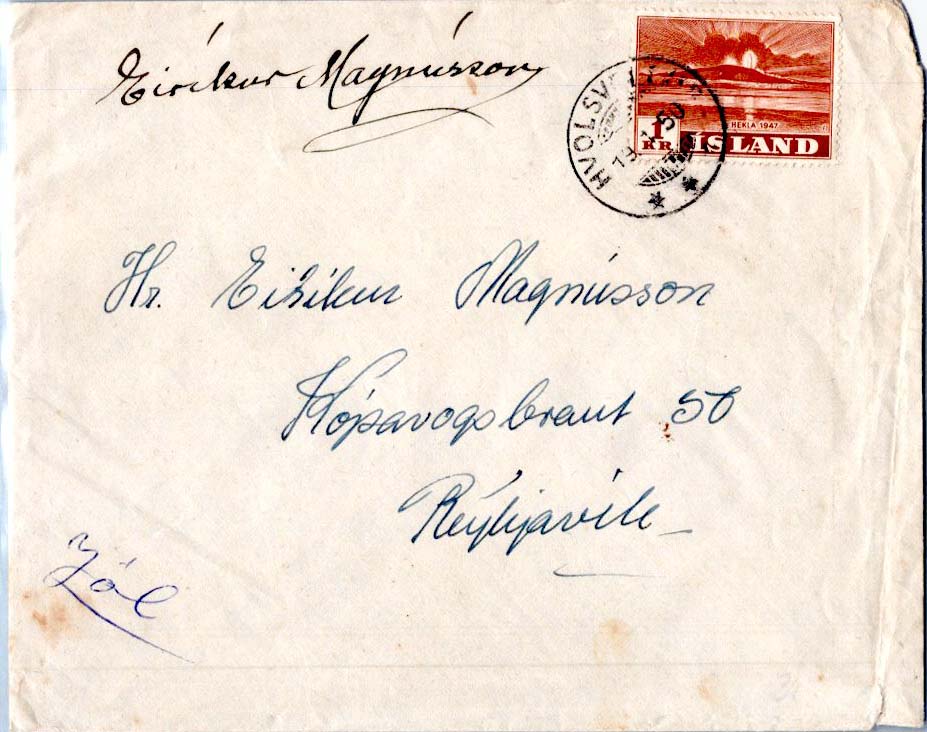 Eiríkur Magnússon
HEKLA 1947
1 KR. ÍSLAND
HVOLSV
19.1.50
Hr. Eiríkur Magnússon
Kópavogsbraut 50
Reýkjavík
Jól